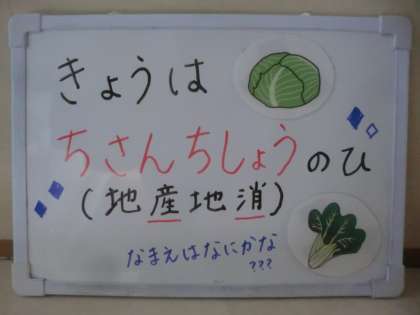 きょうは
ちさんちしょうのひ
(地産地消)
なまえはなにかな
???